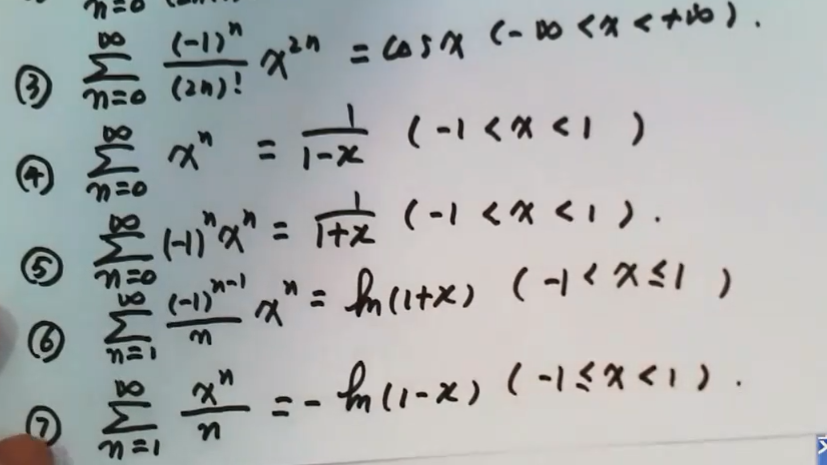 n=0 (2n+
③ ∞ ∑ n=0 (-1)^n/(2n)! x^{2n} = cosx (-∞<x<+∞).
④ ∞ ∑ n=0 x^n = 1/(1-x) (-1<x<1)
⑤ ∞ ∑ n=0 (-1)^n x^n = 1/(1+x) (-1<x<1).
⑥ ∞ ∑ n=1 (-1)^{n-1}/n x^n = ln(1+x) (-1<x≤1)
⑦ ∞ ∑ n=1 x^n/n = -ln(1-x) (-1≤x<1).